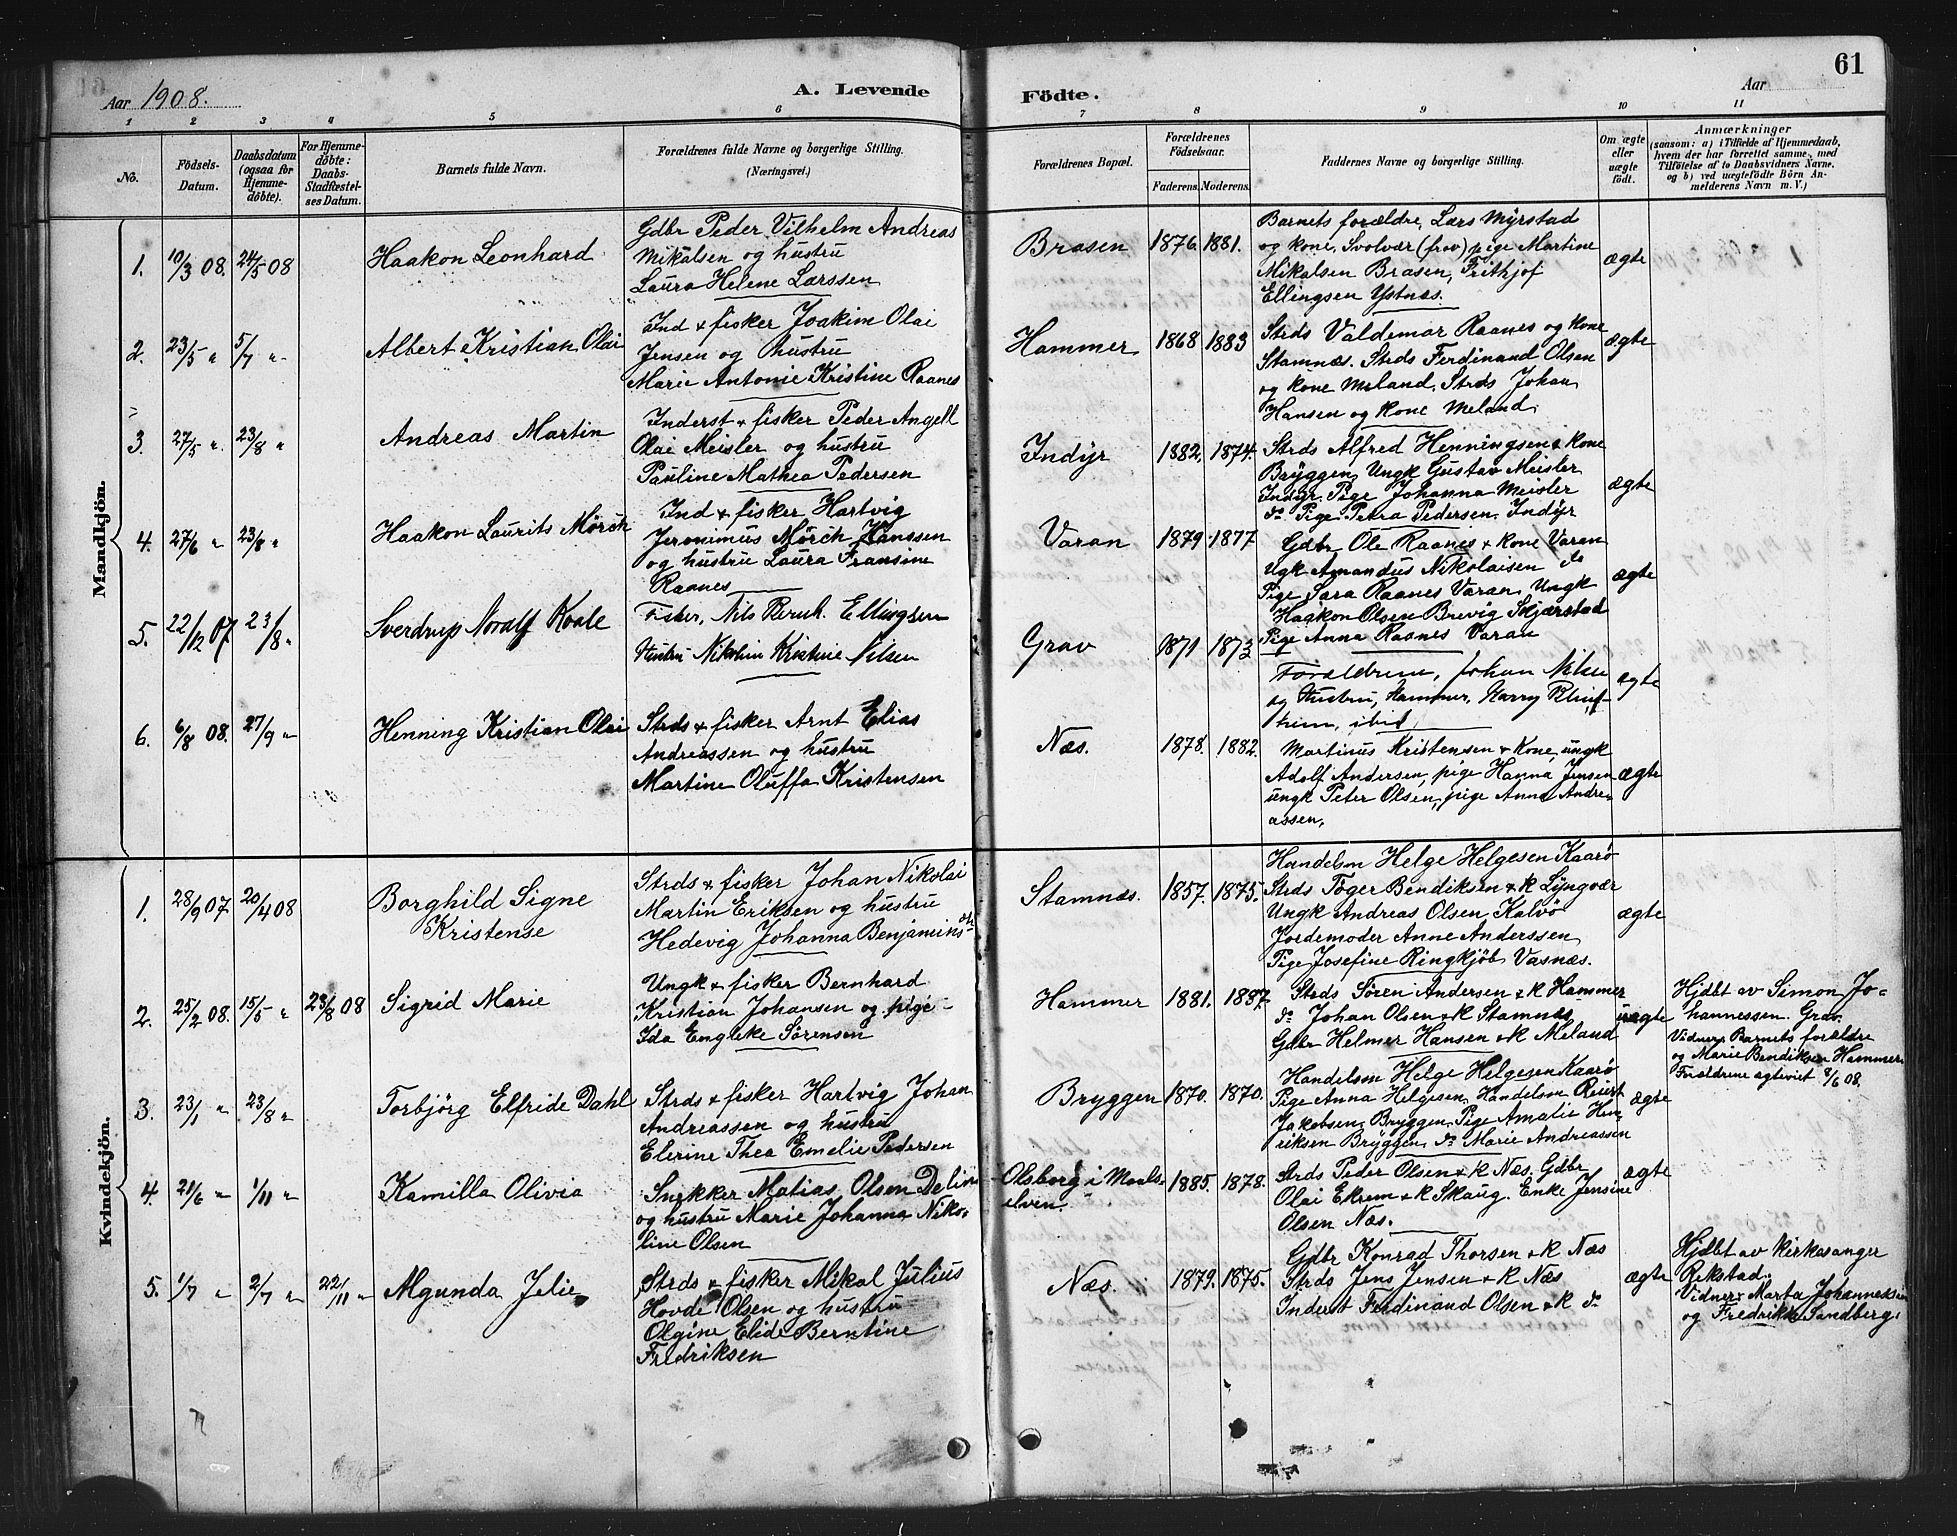 61
Aar 1908.
A. Levende
Födte.
Aar
1 2 3 4 5 6 7 8 9 10 11
No.
Födsels-
Datum.
Daabsdatum
(ogsaa for
Hjemme-
döbte).
For Hjemme-
döbte:
Daabs-
Stadfæstel-
ses Datum.
Barnets fulde Navn.
Forældrenes fulde Navne og borgerlige Stilling.
(Næringsvei.)
Forældrenes Bopæl.
Forældrenes
Födselsaar.
Faderens. Moderens.
Faddernes Navne og borgerlige Stilling.
Om ægte
eller
uægte
födt.
Anmærkninger
(saasom: a) i Tilfælde af Hjemmedaab,
hvem der har forrettet samme, med
Tilföielse af to Daabsvidners Navne,
og b) ved uægtefödte Börn An-
melderens Navn m. V.)
Mandkjön.
1. 10/3 08. 24/5 08
Haakon Leonhard
Gdbr Peder Vilhelm Andreas
Mikalsen og hustru
Laura Helene Larssen
Brasen 1876. 1881.
Barnets forældre, Lars Myrstad
og kone, Svolvær (frav) pige Martine
Mikalsen Brasen, Frithjof
Ellingsen Ystnæs.
ægte
2. 23/5 " 5/7 "
Albert Kristian Olai
Ind & fisker Joakim Olai
Jensen og hustru
Marie Antonie Kristine Raanes
Hammer 1868 1883
Strds Valdemar Raanes og kone
Stamnæs. Strds Ferdinand Olsen
og kone Meland. Strds Johan
Hansen og kone Meland.
ægte
3. 27/5 " 23/8 "
Andreas Martin
Inderst & fisker Peder Angell
Olai Meisler og hustru
Pauline Mathea Pedersen
Indyr 1882. 1874.
Strds Alfred Henningsen & kone
Bryggen, Ungk Gustav Meisler
Indyr. Pige Johanna Meisler
do Pige Petra Pedersen. Indyr
ægte
4. 27/6 " 23/8 "
Haakon Laurits Mørch
Ind & fisker Hartvig
Jeronimus Mørch Hanssen
og hustru Laura Fransine
Raanes
Varan 1879 1877
Gdbr Ole Raanes & kone Varan
Ugk Amandus Nikolaisen do
Pige Sara Raanes Varan, Ungk
Haakon Olsen Brevig Skjærstad
Pige Anna Raanes Varan
ægte
5. 22/12 07 23/8 "
Sverdrup Noralf Koale
Fisker, Nils Ellingsen
Hustru Nikolin Kristine Nilsen
Grav 1871 1873
Forældrene, Johan Nilsen
og Hustru, Hammer, Harry
heim, ibid
ægte
6. 6/8 08. 27/9 "
Henning Kristian Olai
Strds & fisker Arnt Elias
Andreassen og hustru
Martine Oluffa Kristensen
Næs. 1878. 1882.
Martinus Kristensen & Kone, ungk
Adolf Andersen, pige Hanna Jensen
ungk Peter Olsen, pige Anna Andre-
assen,
ægte
Kvindekjön.
1. 28/9 07. 20/4 08
Borghild Signe
Kristense
Strds & fisker Johan Nikolai
Martin Eriksen og hustru
Hedevig Johanna Benjamins
Stamnæs. 1857. 1875.
Handelsm Helge Helgesen Kaarø
Strds Töger Bendiksen & K Lyngvær
Ungk Andreas Olsen, Kalvø
Jordemoder Anne Anderssen
Pige Josefine Ringkjöb Vasnæs.
ægte
2. 25/2 08. 15/5 " 23/8 08
Sigrid Marie
Ungk & fisker Bernhard
Kristian Johansen og pige
Ida Engleke Sørensen
Hammer 1881. 1887.
Strds Sören Andersen & K Hammer
do Johan Olsen & K Stamnæs,
Gdbr Helmer Hansen & K Meland
uægte
Hjdbt av Simon Jo-
hannessen. Grav.
Vidner Barnets forældre
og Marie Bendiksen Hammer
Forældrene ægteviet 8/6 08.
3. 23/1 " 23/8 "
Torbjörg Elfride Dahl
Strds & fisker Hartvig Johan
Andreassen og hustru
Elerine Thea Emelie Pedersen
Bryggen 1870. 1870.
Handelsm Helge Helgesen Kaarø
Pige Anna Helgesen, Handelsm Reiert
Jakobsen, Bryggen, Pige Amalie Hen-
riksen Bryggen, do Marie Andreassen
ægte
4. 21/6 " 1/11 "
Kamilla Olivia
Snekker Matias Olsen Delin
og hustru Marie Johanna Niko-
line Olsen
Olsborg i Maals-
elven. 1885. 1878.
Strds Peder Olsen & K Næs. Gdbr
Olai Ekrem & K Skaug. Enke Jensine
Olsen Næs.
ægte
5. 1/7 " 2/7 " 22/11 "
Magunda Jelie
Strds & fisker Mikal Julius
Hovde Olsen og hustru
Olgine Elide Berntine
Fredriksen
Næs. 1879. 1875.
Gdbr Konrad Thorsen & K Næs
Strds Jens Jensen & K Næs
Inderst Ferdinand Olsen & K do
ægte
Hjdbt av Kirkesanger
Rekstad.
Vidner Marta Johannessen
og Fredrikke Sandberg.